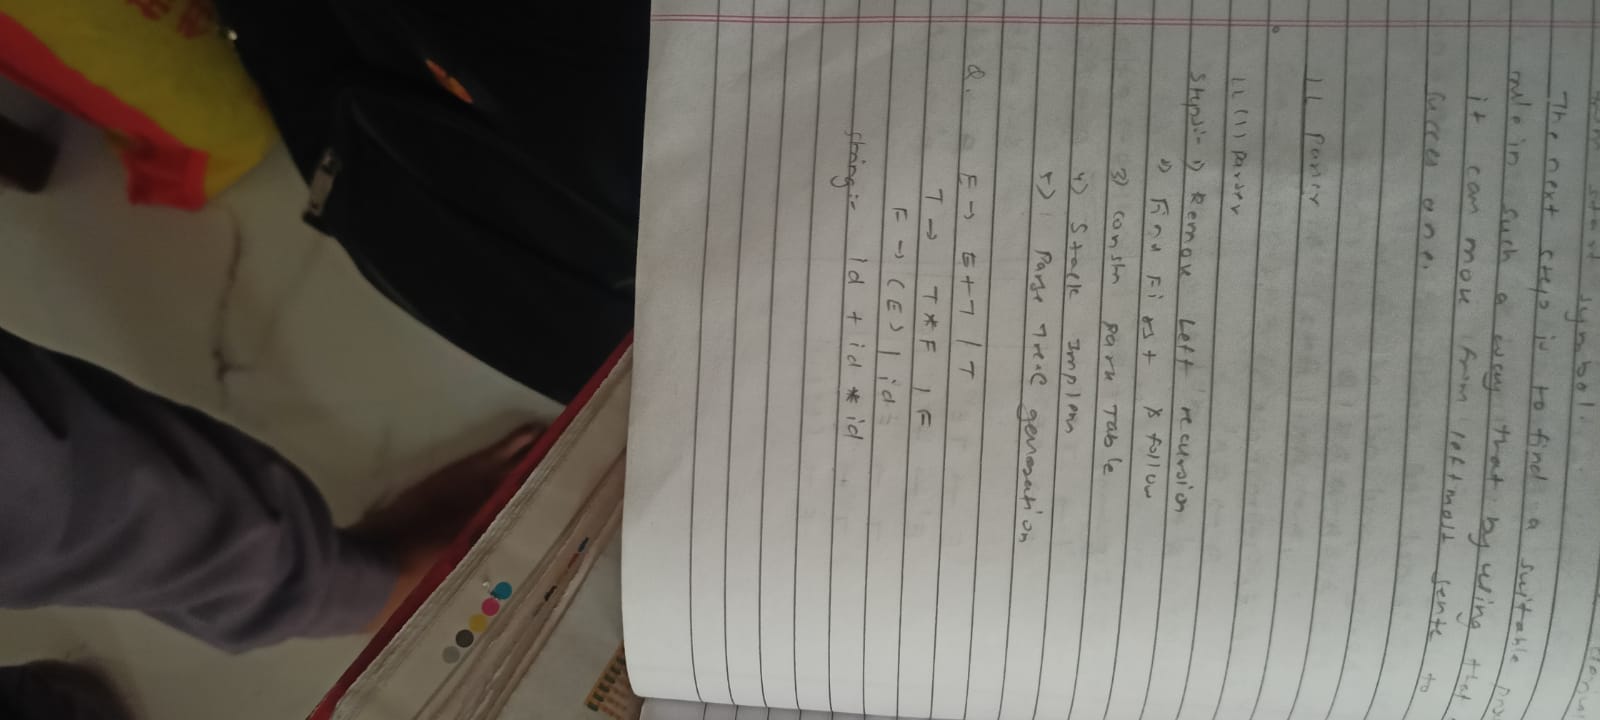 from start symbol.
The next step is to find a suitable
rule in such a way that by using that
it can move from leftmost sente to
succes one.
LL Parser
LL (1) Parser
Steps:- 1) Remove Left recursion
2) Find First & follow
3) constn Parse Table
4) Stack Implem
5) Parse Tree generation
Q. E → E + T | T
T → T * F | F
F → (E) | id
string:- id + id * id